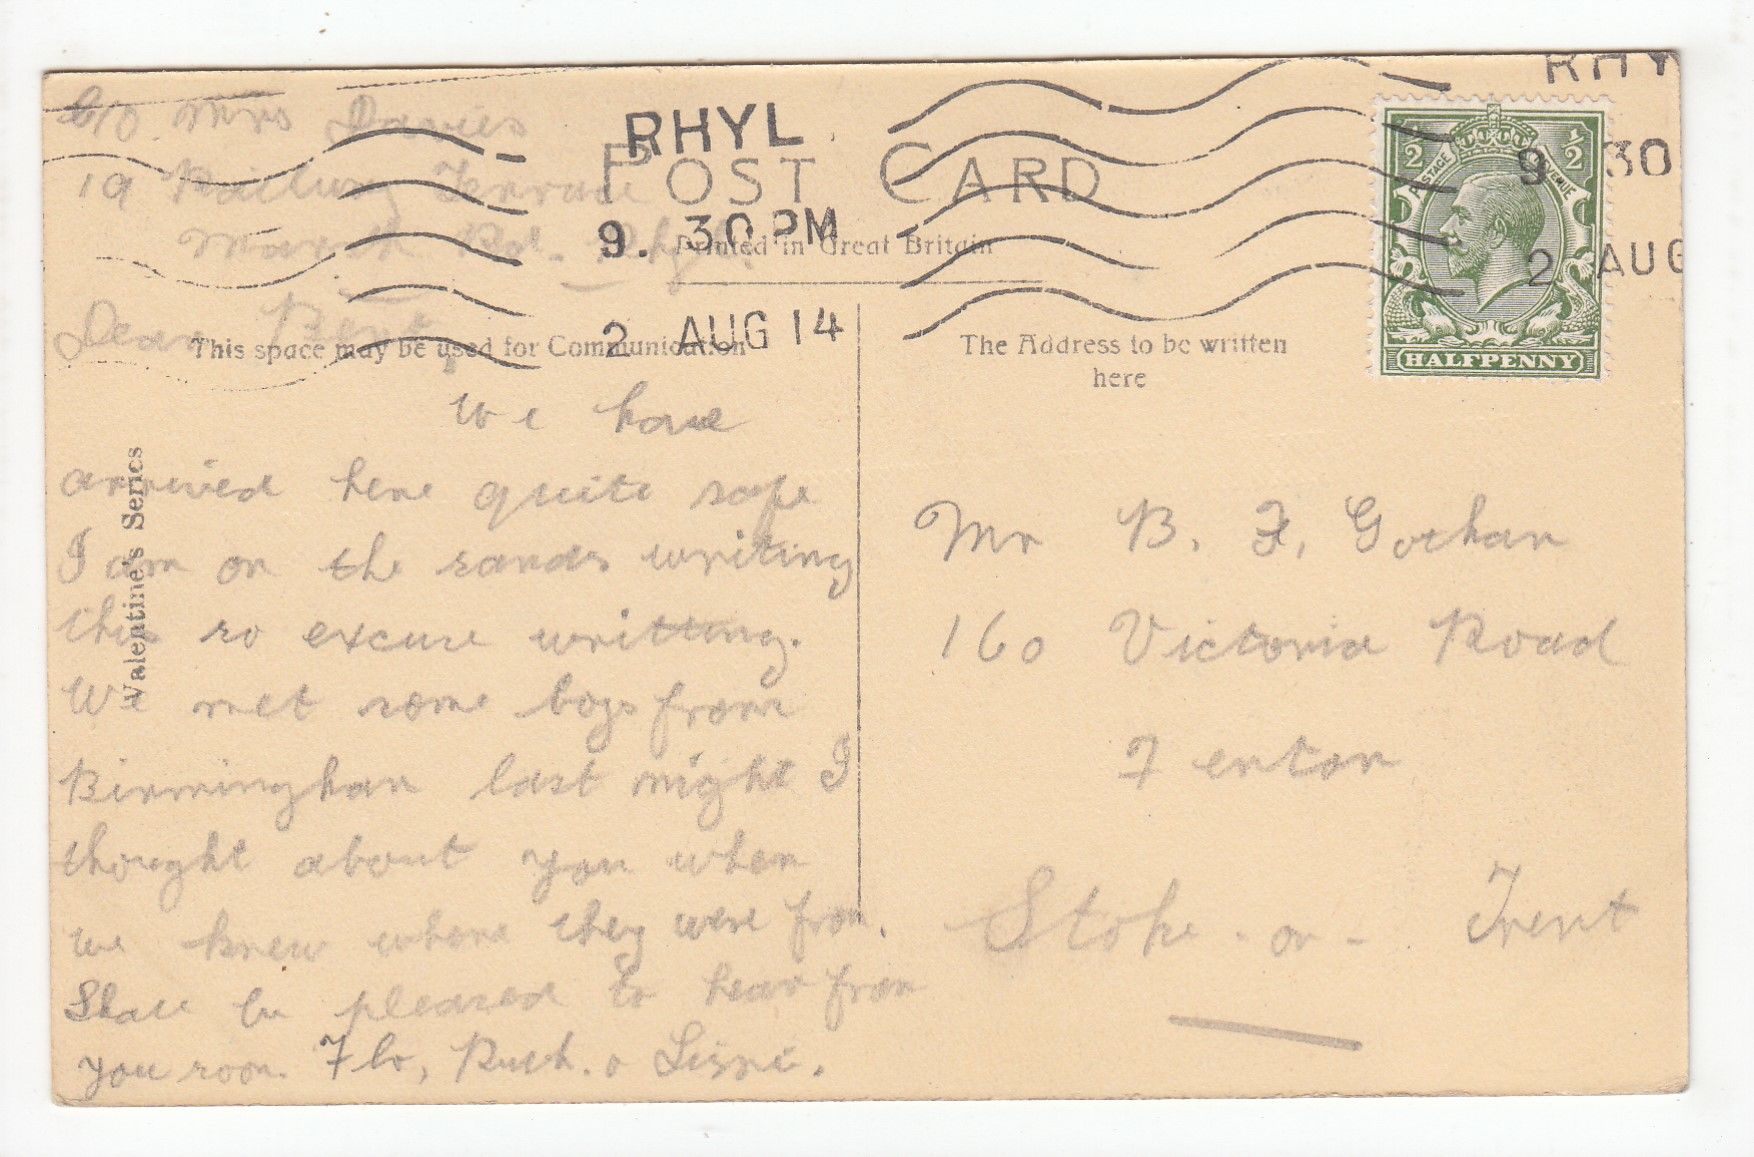 C/O Mrs Davies
19 Railway Terrace
Marsh Rd. Rhyl.
RHYL
POST CARD
9. 30 PM
Printed in Great Britain
2 AUG 14
RHY
9 30
2 AUG
POSTAGE REVENUE
1/2 1/2
HALFPENNY
Dear Bert
This space may be used for Communication
The Address to be written
here
Valentine's Series
We have
arrived here quite safe
I am on the sands writing
this so excuse writting.
We met some boys from
Birmingham last night I
thought about you when
we knew where they were from.
Shall be pleased to hear from
you soon. Flo, Ruth. o Lizzie.
Mr B. F. Gorhan
160 Victoria Road
Fenton
Stoke - on - Trent